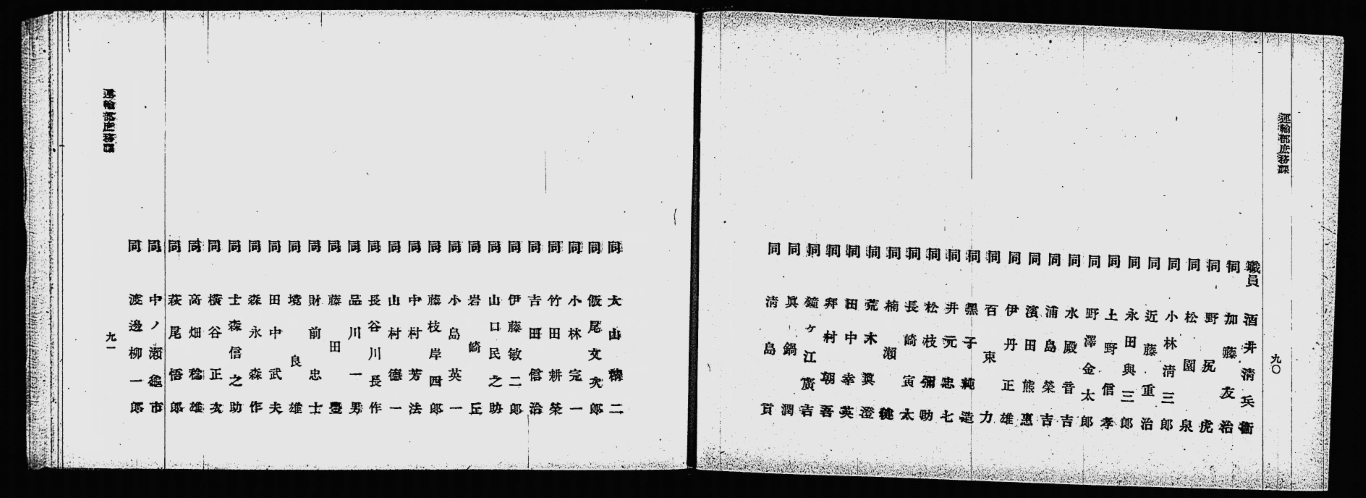 九〇
職員 酒井清兵衞
同 加藤友治
同 野尻虎
同 松園泉
同 小林清三郎
同 近藤重治
同 永田與三郎
同 上野信孝
同 野澤金太郎
同 水殿音吉
同 浦島榮吉
同 濱田熊惠
同 伊丹正雄
同 百束力
同 黑子純造
同 井元忠七
同 松枝彌助
同 長崎寅太
同 楠瀬健
同 荒木眞澄
同 田中幸英
同 村朝吾
同 鐘ヶ江廣吉
同 眞鍋潤
同 淸島貫
同 大山積二
同 飯尾文次郎
同 小林完一
同 竹田耕榮
同 吉田信治
同 伊藤敏二郎
同 山口民之助
同 岩崎丘
同 小島英一
同 藤枝岸四郎
同 中村芳法
同 山村德一
同 長谷川長作
同 品川一男
同 藤田豊
同 財前忠士
同 境良雄
同 田中武夫
同 森永森作
同 士森信之助
同 横谷正次
同 高畑稔雄
同 萩尾悟郎
同 中ノ瀬龜市
同 渡邊柳一郎
九一